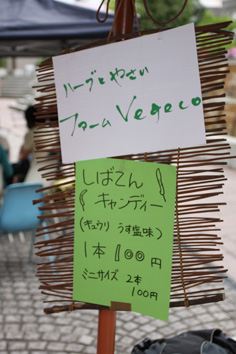 ハーブとやさい
ファーム Vegeco
しばてん
キャンディー
(キュウリ うす塩味)
1本 100円
ミニサイズ 2本
100円